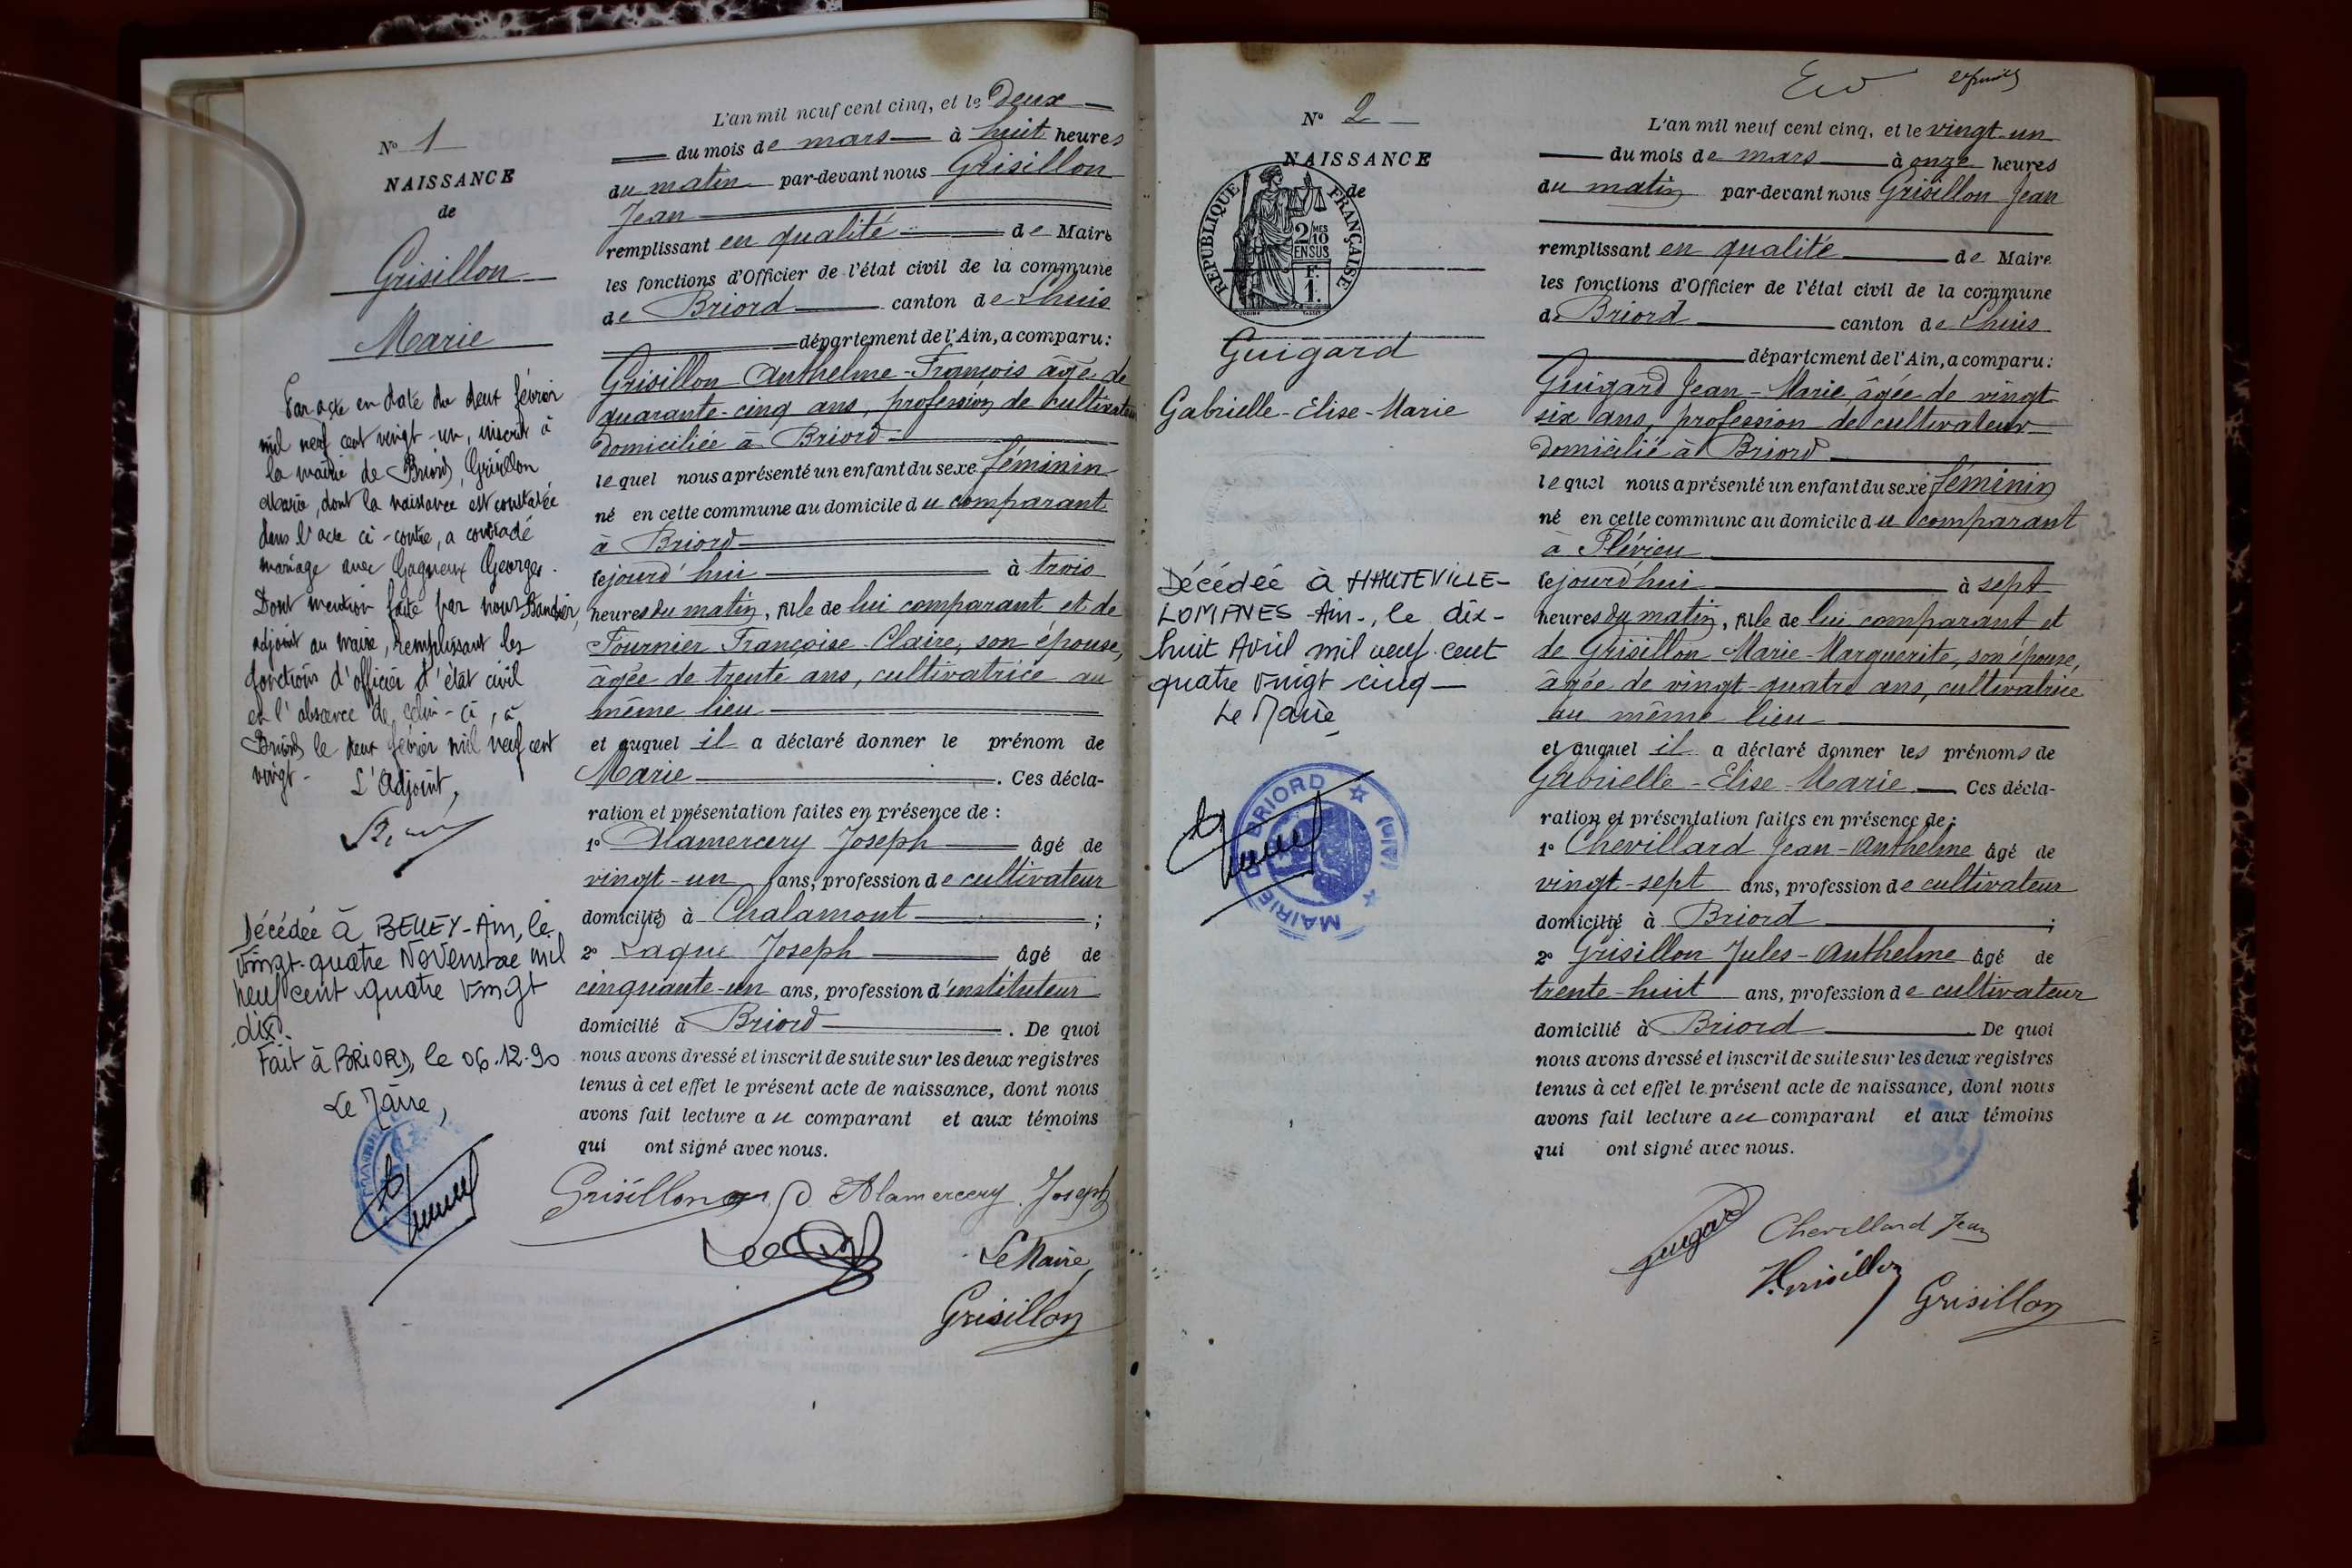 N° 1
NAISSANCE
de
Grisillon
Marie
Par acte en date du deux février
mil neuf cent vingt-un, inscrit à
la mairie de Briord, Grisillon
Marie, dont la naissance est constatée
dans l'acte ci-contre, a contracté
mariage avec Gagneux Georges.
Dont mention faite par nous
adjoint au maire, remplissant les
fonctions d'officier d'état civil
en l'absence de celui-ci, à
Briord le deux février mil neuf cent
vingt-
L'Adjoint,
Décédée à BELLEY-Ain, le
vingt-quatre Novembre mil
neuf cent quatre vingt
dix.
Fait à BRIORD, le 06.12.90
Le Maire,
L'an mil neuf cent cinq, et le deux
du mois de mars à huit heures
du matin par-devant nous Grisillon
Jean
remplissant en qualité de Maire
les fonctions d'Officier de l'état civil de la commune
de Briord canton de Lhuis
département de l'Ain, a comparu:
Grisillon Anthelme-François âgé de
quarante-cinq ans, profession de cultivateur
domiciliée à Briord
lequel nous a présenté un enfant du sexe féminin
né en cette commune au domicile du comparant
à Briord
cejourd'hui à trois
heures du matin, fille de lui comparant et de
Fournier Françoise-Claire, son épouse,
âgée de trente ans, cultivatrice au
même lieu
et auquel il a déclaré donner le prénom de
Marie . Ces décla-
ration et présentation faites en présence de :
1° Alamercery Joseph âgé de
vingt-un ans, profession de cultivateur
domicilié à Chalamont ;
2° Laque Joseph âgé de
cinquante-un ans, profession d'instituteur
domicilié à Briord . De quoi
nous avons dressé et inscrit de suite sur les deux registres
tenus à cet effet le présent acte de naissance, dont nous
avons fait lecture au comparant et aux témoins
qui ont signé avec nous.
Grisillon Alamercery Joseph
Le Maire,
Grisillon
N° 2
NAISSANCE
de
REPUBLIQUE FRANÇAISE
2/10 MES
EN SUS
F.
1.
Guigard
Gabrielle-Elise-Marie
Décédée à HAUTEVILLE-
LOMPNES -Ain-, le dix-
huit Avril mil neuf cent
quatre vingt cinq
Le Maire,
MAIRIE DE BRIORD (AIN)
L'an mil neuf cent cinq, et le vingt-un
du mois de mars à onze heures
du matin par-devant nous Grisillon Jean
remplissant en qualité de Maire
les fonctions d'Officier de l'état civil de la commune
de Briord canton de Lhuis
département de l'Ain, a comparu:
Guigard Jean-Marie âgée de vingt
six ans, profession de cultivateur
domicilié à Briord
lequel nous a présenté un enfant du sexe féminin
né en cette commune au domicile du comparant
à Flévieu
cejourd'hui à sept
heures du matin, fille de lui comparant et
de Grisillon Marie-Marguerite, son épouse,
âgée de vingt-quatre ans, cultivatrice
au même lieu
et auquel il a déclaré donner les prénoms de
Gabrielle-Elise-Marie Ces décla-
ration et présentation faites en présence de:
1° Chevillard Jean-Anthelme âgé de
vingt-sept ans, profession de cultivateur
domicilié à Briord ;
2° Grisillon Jules-Anthelme âgé de
trente-huit ans, profession de cultivateur
domicilié à Briord De quoi
nous avons dressé et inscrit de suite sur les deux registres
tenus à cet effet le présent acte de naissance, dont nous
avons fait lecture au comparant et aux témoins
qui ont signé avec nous.
Guigard Chevillard Jean
Grisillon
Grisillon